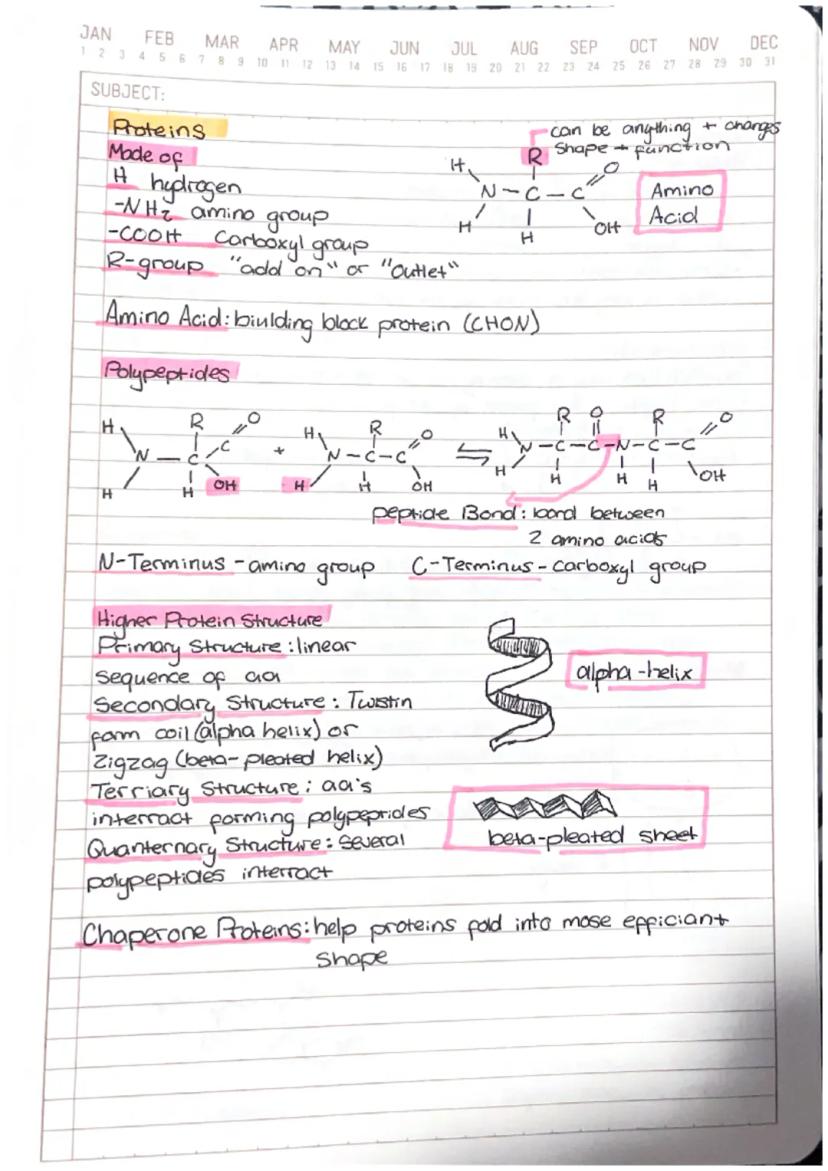 JAN FEB MAR APR MAY JUN JUL AUG SEP OCT NOV DEC
1 2 3 4 5 6 7 8 9 10 11 12 13 14 15 16 17 18 19 20 21 22 23 24 25 26 27 28 29 30 31
SUBJECT:
Proteins
can be anything + changes
shape + function
Made of
H hydrogen
-NH2 amino group
-COOH Carboxyl group
R-group "add on" or "Outlet"
R
H O
N - C - C
H H OH
Amino
Acid
Amino Acid: biulding block protein (CHON)
Polypeptides
H R O H R O H R O R O
N - C C + N - C - C ⇋ N - C - C - N - C - C
H H OH H H OH H H H H OH
peptide Bond: bond between
2 amino acids
N-Terminus - amino group C-Terminus - carboxyl group
Higher Protein Structure
Primary Structure: linear
sequence of aa
Secondary Structure: Twistin
form coil (alpha helix) or
Zigzag (beta-pleated helix)
Terriary Structure: aa's
interract forming polypeprides
Quanternary Structure: several
polypeptides interract
alpha-helix
beta-pleated sheet
Chaperone Proteins: help proteins fold into mose efficiant
Shape